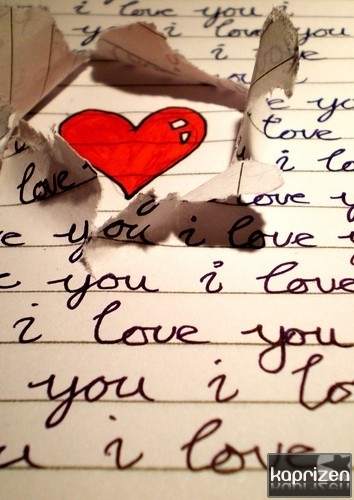 i love you i
you i love
i
e yo
love
i lo
love
love y
e you i love y
e you i love
i love you
you i lo
u i love
kaprizen